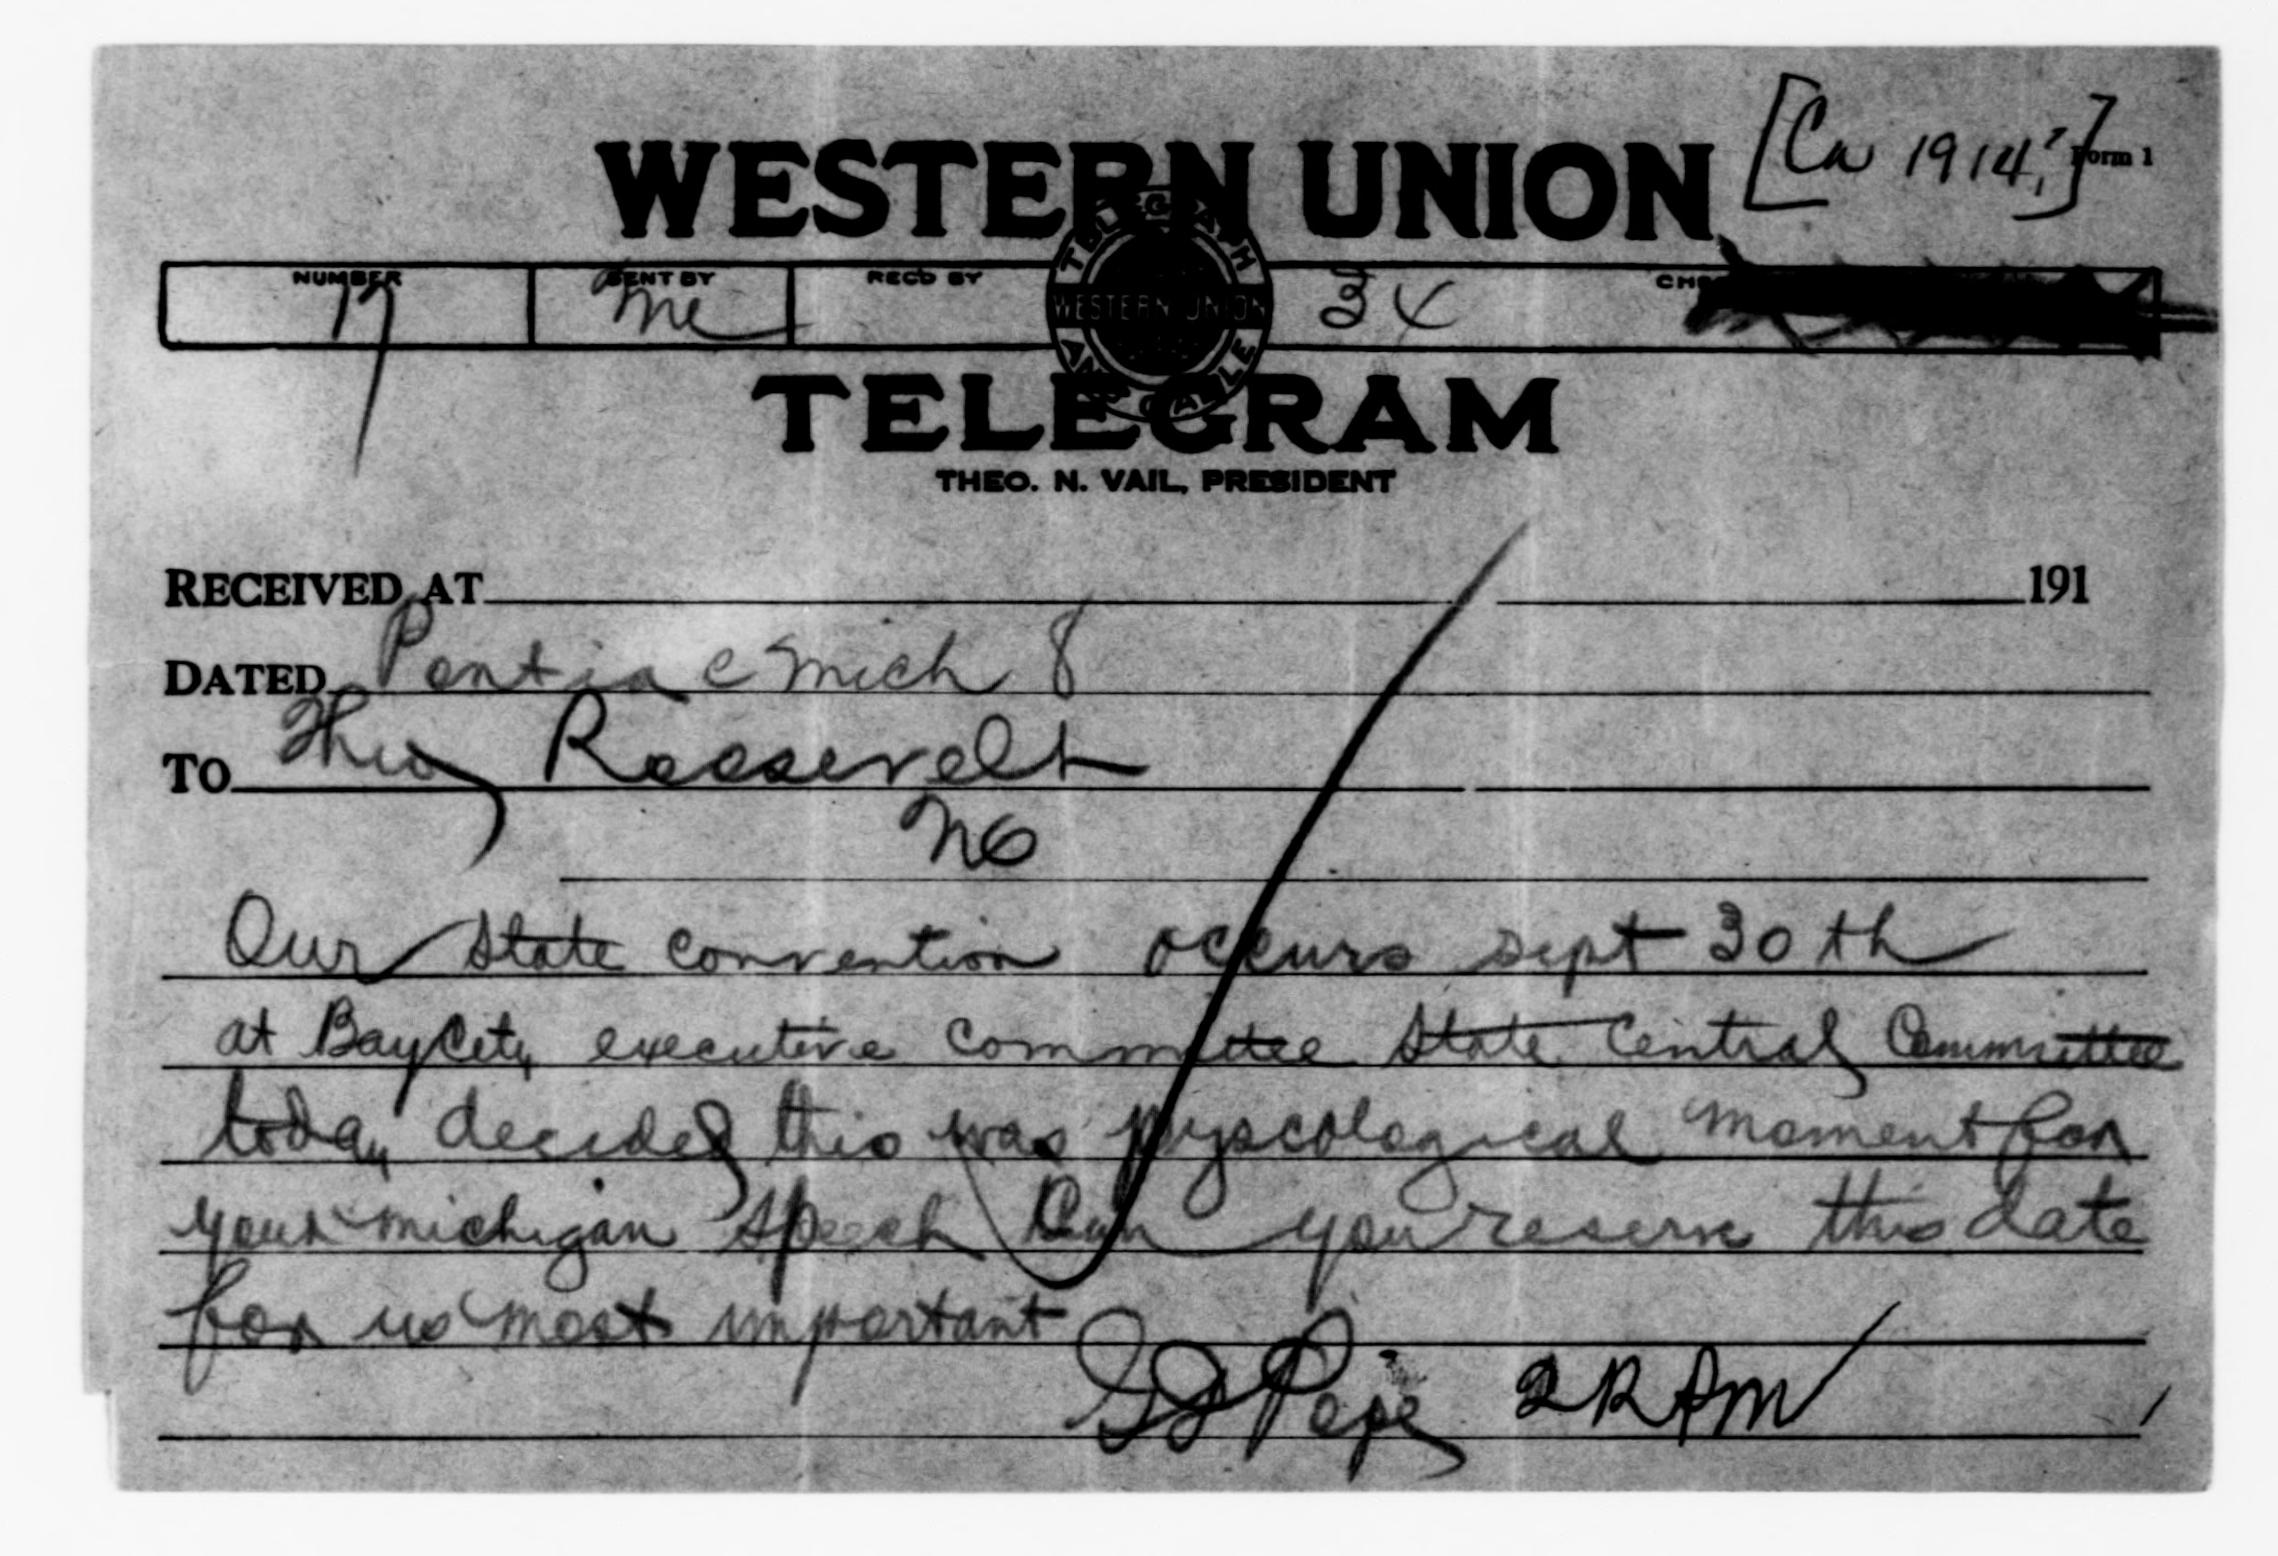 [Ca 1914?]
Form 1
WESTERN UNION
NUMBER SENT BY REC'D BY
17 Me 34
TELEGRAPH AND CABLE
WESTERN UNION
TELEGRAM
THEO. N. VAIL, PRESIDENT
RECEIVED AT 191
DATED Pontiac Mich 8
TO Theo Roosevelt
Our State convention occurs sept 30th
at Bay City executive committee State Central Committee
today decided this was pyscological moment for
your michigan speech Can you reserve this date
for us most important
Pope 2 R Pm